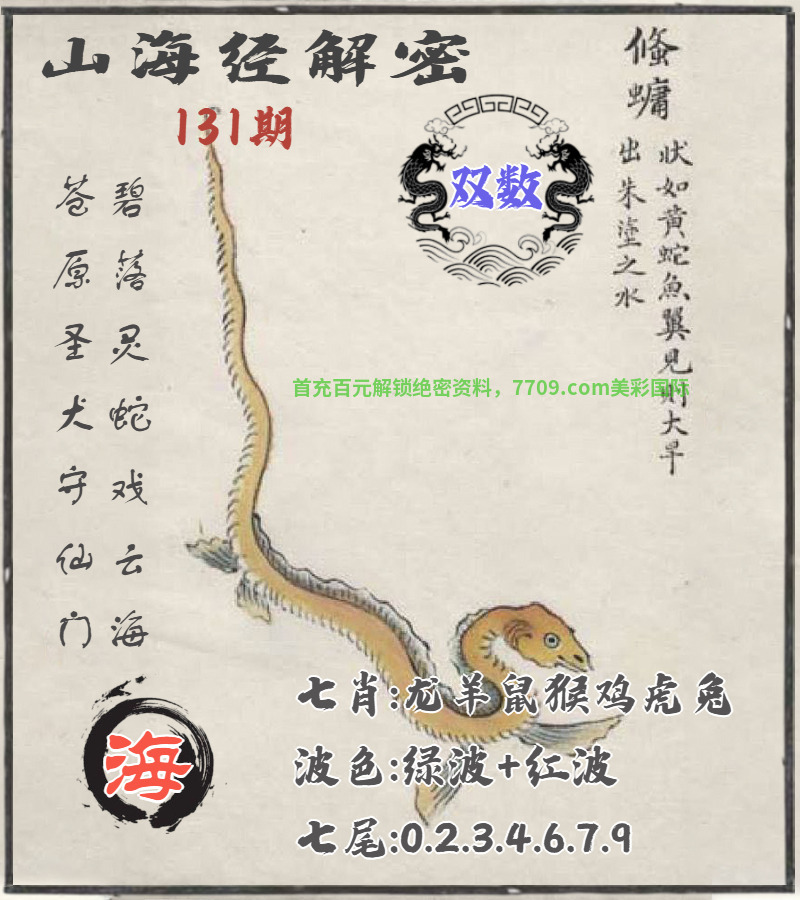 山海经解密
131期
双数
鯈䗤
狀如黄蛇魚翼見則大旱
出朱塗之水
碧落灵蛇戏云海
苍原圣犬守仙门
首充百元解锁绝密资料，7709.com美彩国际
七肖:龙羊鼠猴鸡虎兔
波色:绿波+红波
七尾:0.2.3.4.6.7.9
海